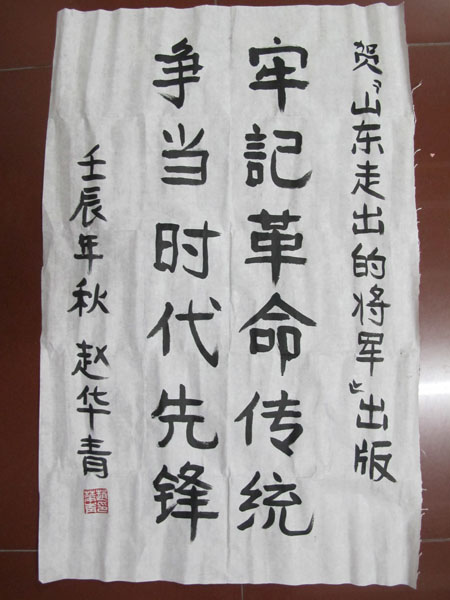 贺《山东走出的将军》出版
牢記革命传统
争当时代先锋
壬辰年秋 赵华青